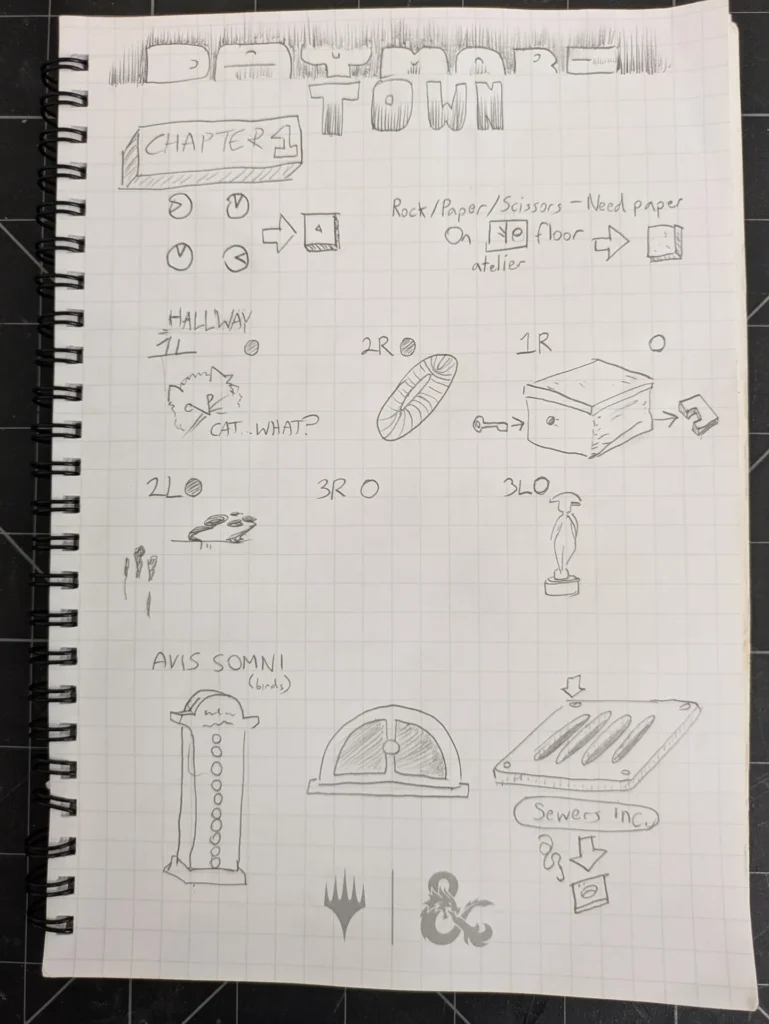 DAYMARE
TOWN
CHAPTER 1
Rock/Paper/Scissors - Need paper
On floor
atelier
HALLWAY
1L
2R
1R
CAT..WHAT?
2L
3R
3L
AVIS SOMNI
(birds)
Sewers inc.